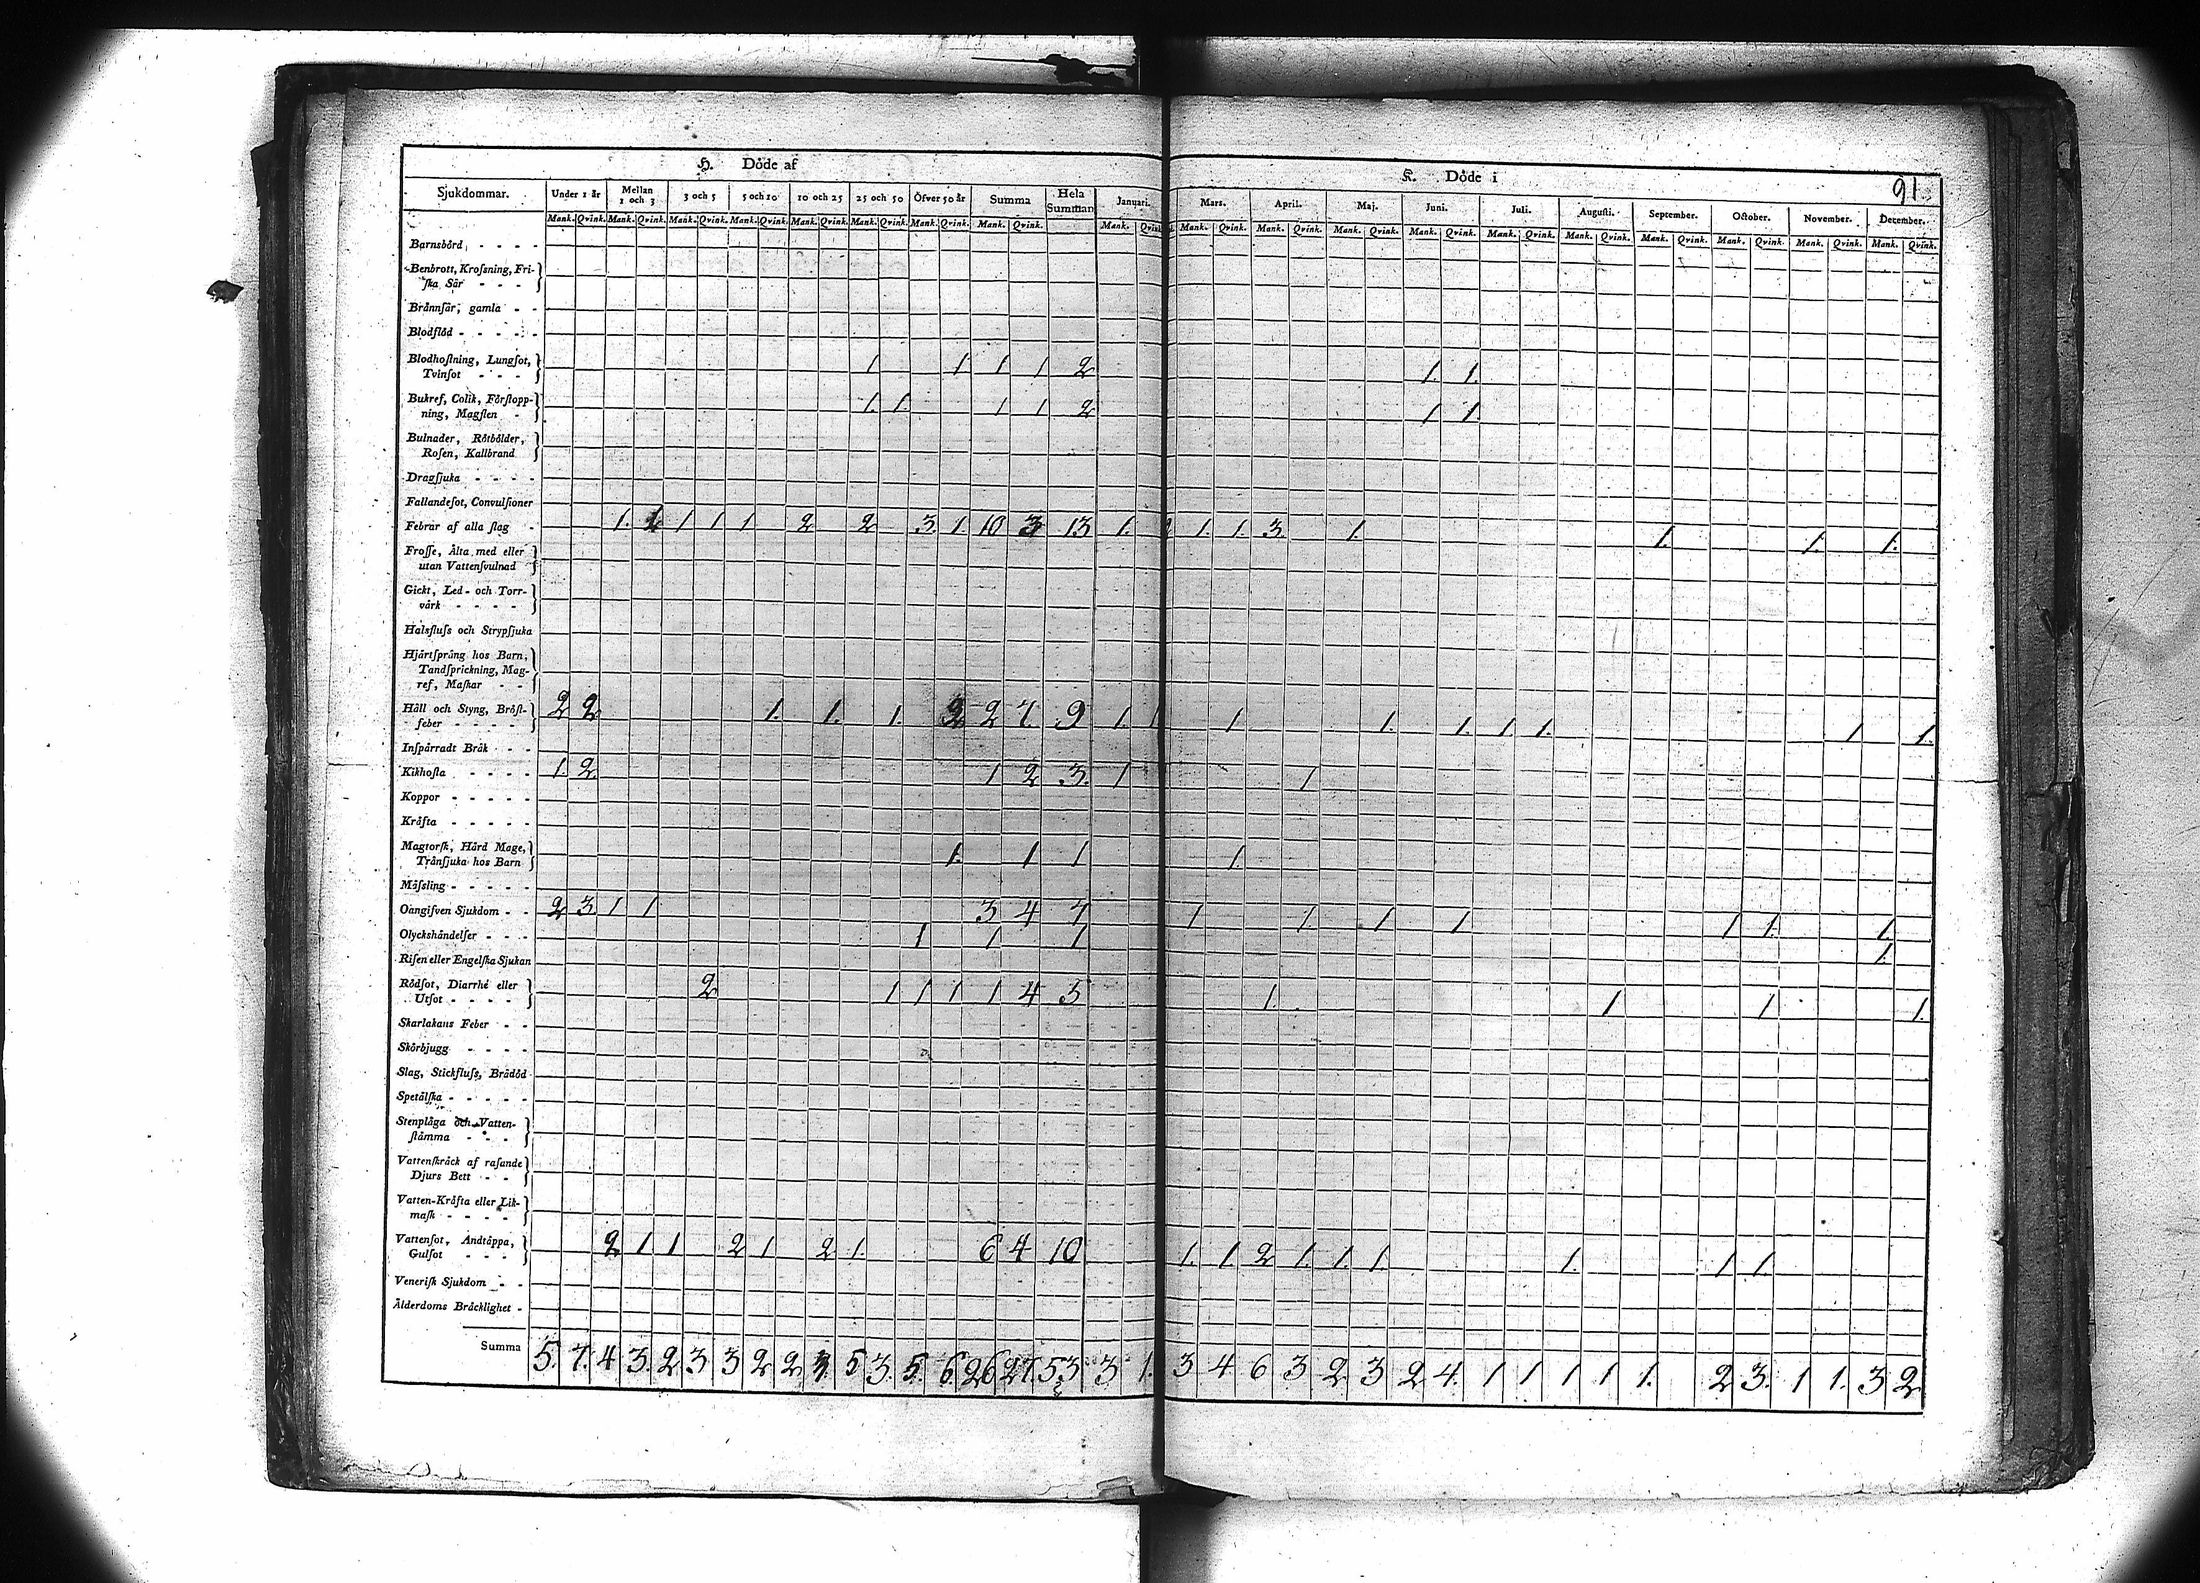 91.
H. Döde af K. Döde i
Sjukdommar. Under 1 år Mellan 1 och 3 3 och 5 5 och 10 10 och 25 25 och 50 Öfver 50 år Summa Hela Summan Januari. Mars. April. Maj. Juni. Juli. Augusti. September. October. November. December.
Mank. Qvink. Mank. Qvink. Mank. Qvink. Mank. Qvink. Mank. Qvink. Mank. Qvink. Mank. Qvink. Mank. Qvink. Mank. Qvink. Mank. Qvink. Mank. Qvink. Mank. Qvink. Mank. Qvink. Mank. Qvink. Mank. Qvink. Mank. Qvink. Mank. Qvink. Mank. Qvink. Mank. Qvink.
Barnsbörd, - - - -
Benbrott, Krofsning, Fri-
ska Sår - - -
Brånnsår, gamla - -
Blodflöd - - - - -
Blodhostning, Lungsot,
Tvinsot - - - 1. 1 1 1 2 1. 1.
Bukref, Colik, Förstopp-
ning, Magsten - 1. 1. 1 1 2 1 1.
Bulnader, Rötbölder,
Rosen, Kallbrand
Dragsjuka - - - -
Fallandesot, Convulsioner
Febrar af alla slag - 1. 1 1 1 1 2 2 3. 1. 10 3 13 1. 1. 1. 3. 1. 1. 1. 1.
Frosse, Ålta med eller
utan Vattensvulnad
Gickt, Led- och Torr-
värk - - - -
Halsflufs och Strypsjuka
Hjärtsprång hos Barn,
Tandsprickning, Mag-
ref, Maskar - -
Håll och Styng, Bröst-
feber - - - - 2 2 1. 1. 1. 2 2 7. 9 1. 1 1 1. 1. 1 1. 1 1.
Inspärradt Bråk - - -
Kikhosta - - - - 1. 2 1 2 3. 1 1
Koppor - - - - -
Kräfta - - - - -
Magtorsk, Hård Mage,
Trånsjuka hos Barn 1. 1 1 1.
Måfsling - - - - -
Oangifven Sjukdom - - 2 3 1 1 3 4 7 1 1 1 1 1 1. 1.
Olyckshändelser - - - 1 1 1 1.
Risen eller Engelska Sjukan
Rödsot, Diarrhé eller
Utsot - - - - 2 1 1 1 1 4 5 1. 1 1 1.
Skarlakans Feber - -
Skörbjugg - - - -
Slag, Stickflufs, Brådöd
Spetälska - - - - -
Stenplåga och Vatten-
stämma - - -
Vattenskräck af rasande
Djurs Bett - -
Vatten-Kräfta eller Lik-
mask - - - -
Vattensot, Andtäppa,
Gulsot - - - 2 1 1 2 1 2 1. 6 4 10 1. 1 2 1. 1. 1. 1. 1 1.
Venerisk Sjukdom - -
Ålderdoms Bräcklighet -
Summa 5. 7. 4 3. 2 3 3 2 2 3. 5 3. 5. 6. 26 27. 53 3 1. 3 4 6 3 2 3 2 4. 1 1 1 1 1. 2 3. 1 1. 3 2